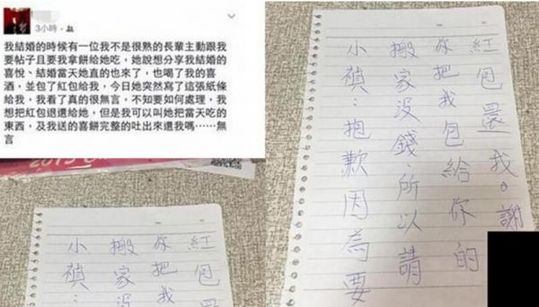 3小時
我結婚的時候有一位我不是很熟的長輩主動跟我
要帖子且要我拿餅給她吃，她說想分享我結婚的
喜悅、結婚當天她直的也來了，也喝了我的喜
酒，並包了紅包給我，今日她突然寫了這張紙條
給我，我看了真的很無言，不知要如何處理，我
想把紅包退還給她，但是我可以叫她把當天吃的
東西，及我送的喜餅完整的吐出來還我嗎……無
言
小禎:抱歉因為要
搬家沒錢,所以請
你把我包給你的
紅包還我。謝
小禎:
搬家沒
你把我
紅包還